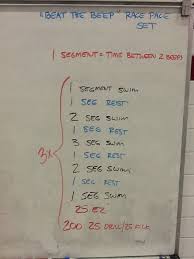 "BEAT THE BEEP" RACE PACE
SET
1 SEGMENT = TIME BETWEEN 2 BEEPS
3x
1 SEGMENT SWIM
1 SEG REST
2 SEG SWIM
1 SEG REST
3 SEG SWIM
1 SEG REST
2 SEG SWIM
1 SEG REST
1 SEG SWIM
25 EZ
200 25 DRILL/25 KICK